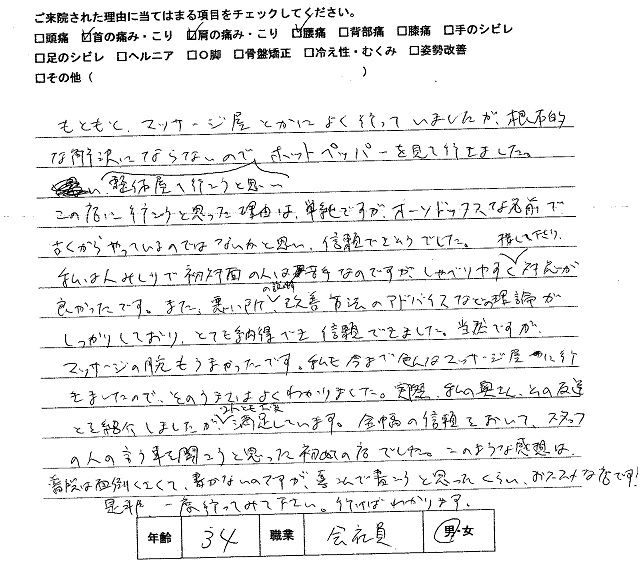 ご来院された理由に当てはまる項目をチェックしてください。
□頭痛 ☑首の痛み・こり ☑肩の痛み・こり ☑腰痛 □背部痛 □膝痛 □手のシビレ
□足のシビレ □ヘルニア □O脚 □骨盤矯正 □冷え性・むくみ □姿勢改善
□その他（ ）
もともと、マッサージ屋とかによく行っていましたが、根本的
な解決にならないので、ホットペッパーを見て行きました。
整体屋へ行こうと思い
この店に行こうと思った理由は、単純ですが、オーソドックスな名前で
古くからやっているのではないかと思い、信頼できそうでした。
探してたり、
私は人みしりで初対面の人は苦手なのですが、しゃべりやすく対応が
良かったです。また、悪い所の説明、改善方法のアドバイスなどの理論が
しっかりしており、とても納得でき信頼できました。当然ですが、
マッサージの腕もうまかったです。私も今まで色んなマッサージ屋に行
きましたので、そのうまさはよくわかりました。実際、私の奥さん、その友達
とを紹介しましたが2人とも大変満足しています。全幅の信頼をおいて、スタッフ
の人の言う事を聞こうと思った初めての店でした。このような感想は、
普段は面倒くさくて、書かないのですが、喜んで書こうと思ったくらい、おススメな店です!
是非一度行ってみて下さい。行けばわかります。
年齢 34 職業 会社員 男・女